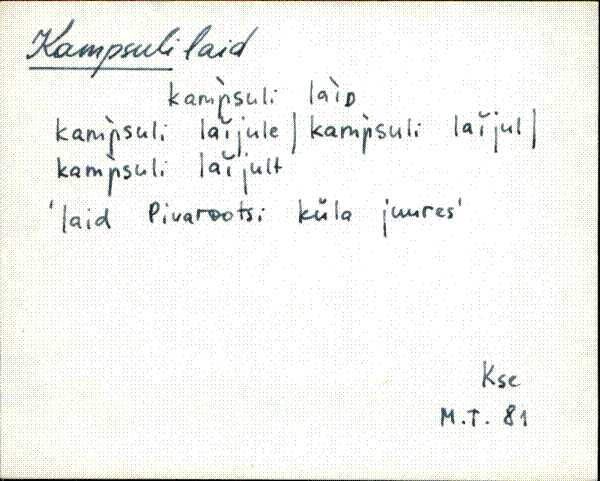 Kampsuli laid
kam̀psuli laìᴅ
kam̀psuli laĭjule | kam̀psuli laĭjul |
kam̀psuli laĭjult
'laid Pivarootsi küla juures'
Kse
M.T. 81